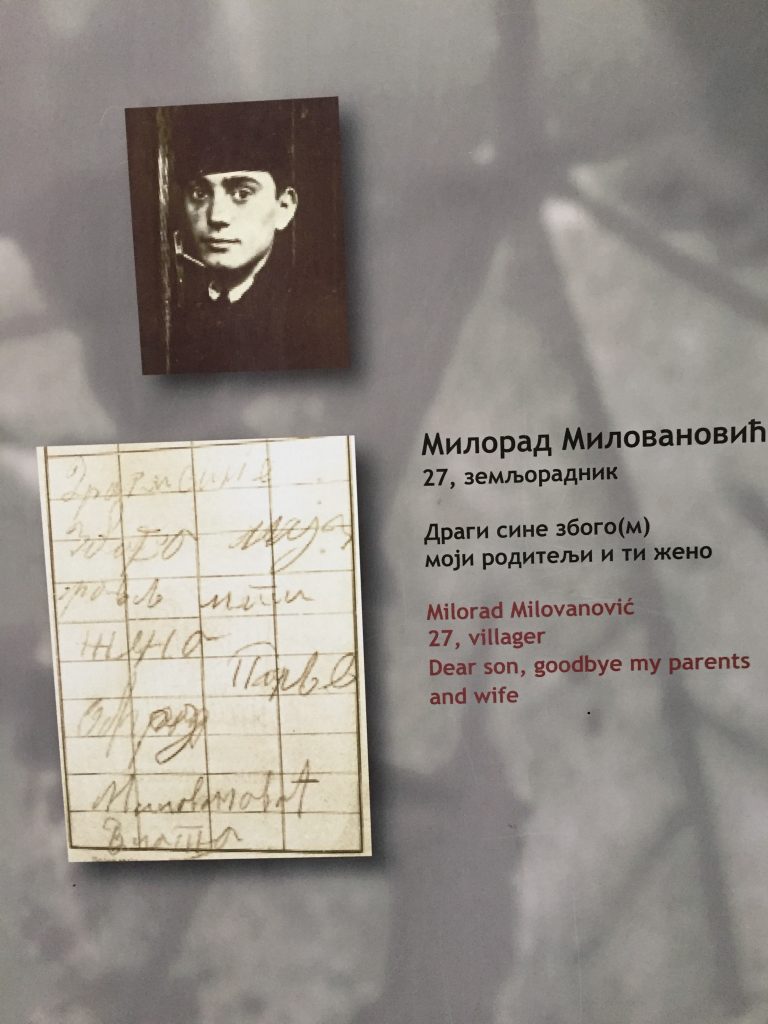 Милорад Миловановић
27, земљорадник
Драги сине збого(м)
моји родитељи и ти жено
Milorad Milovanović
27, villager
Dear son, goodbye my parents
and wife
Драги сине
збого моја
жено
Миловановић